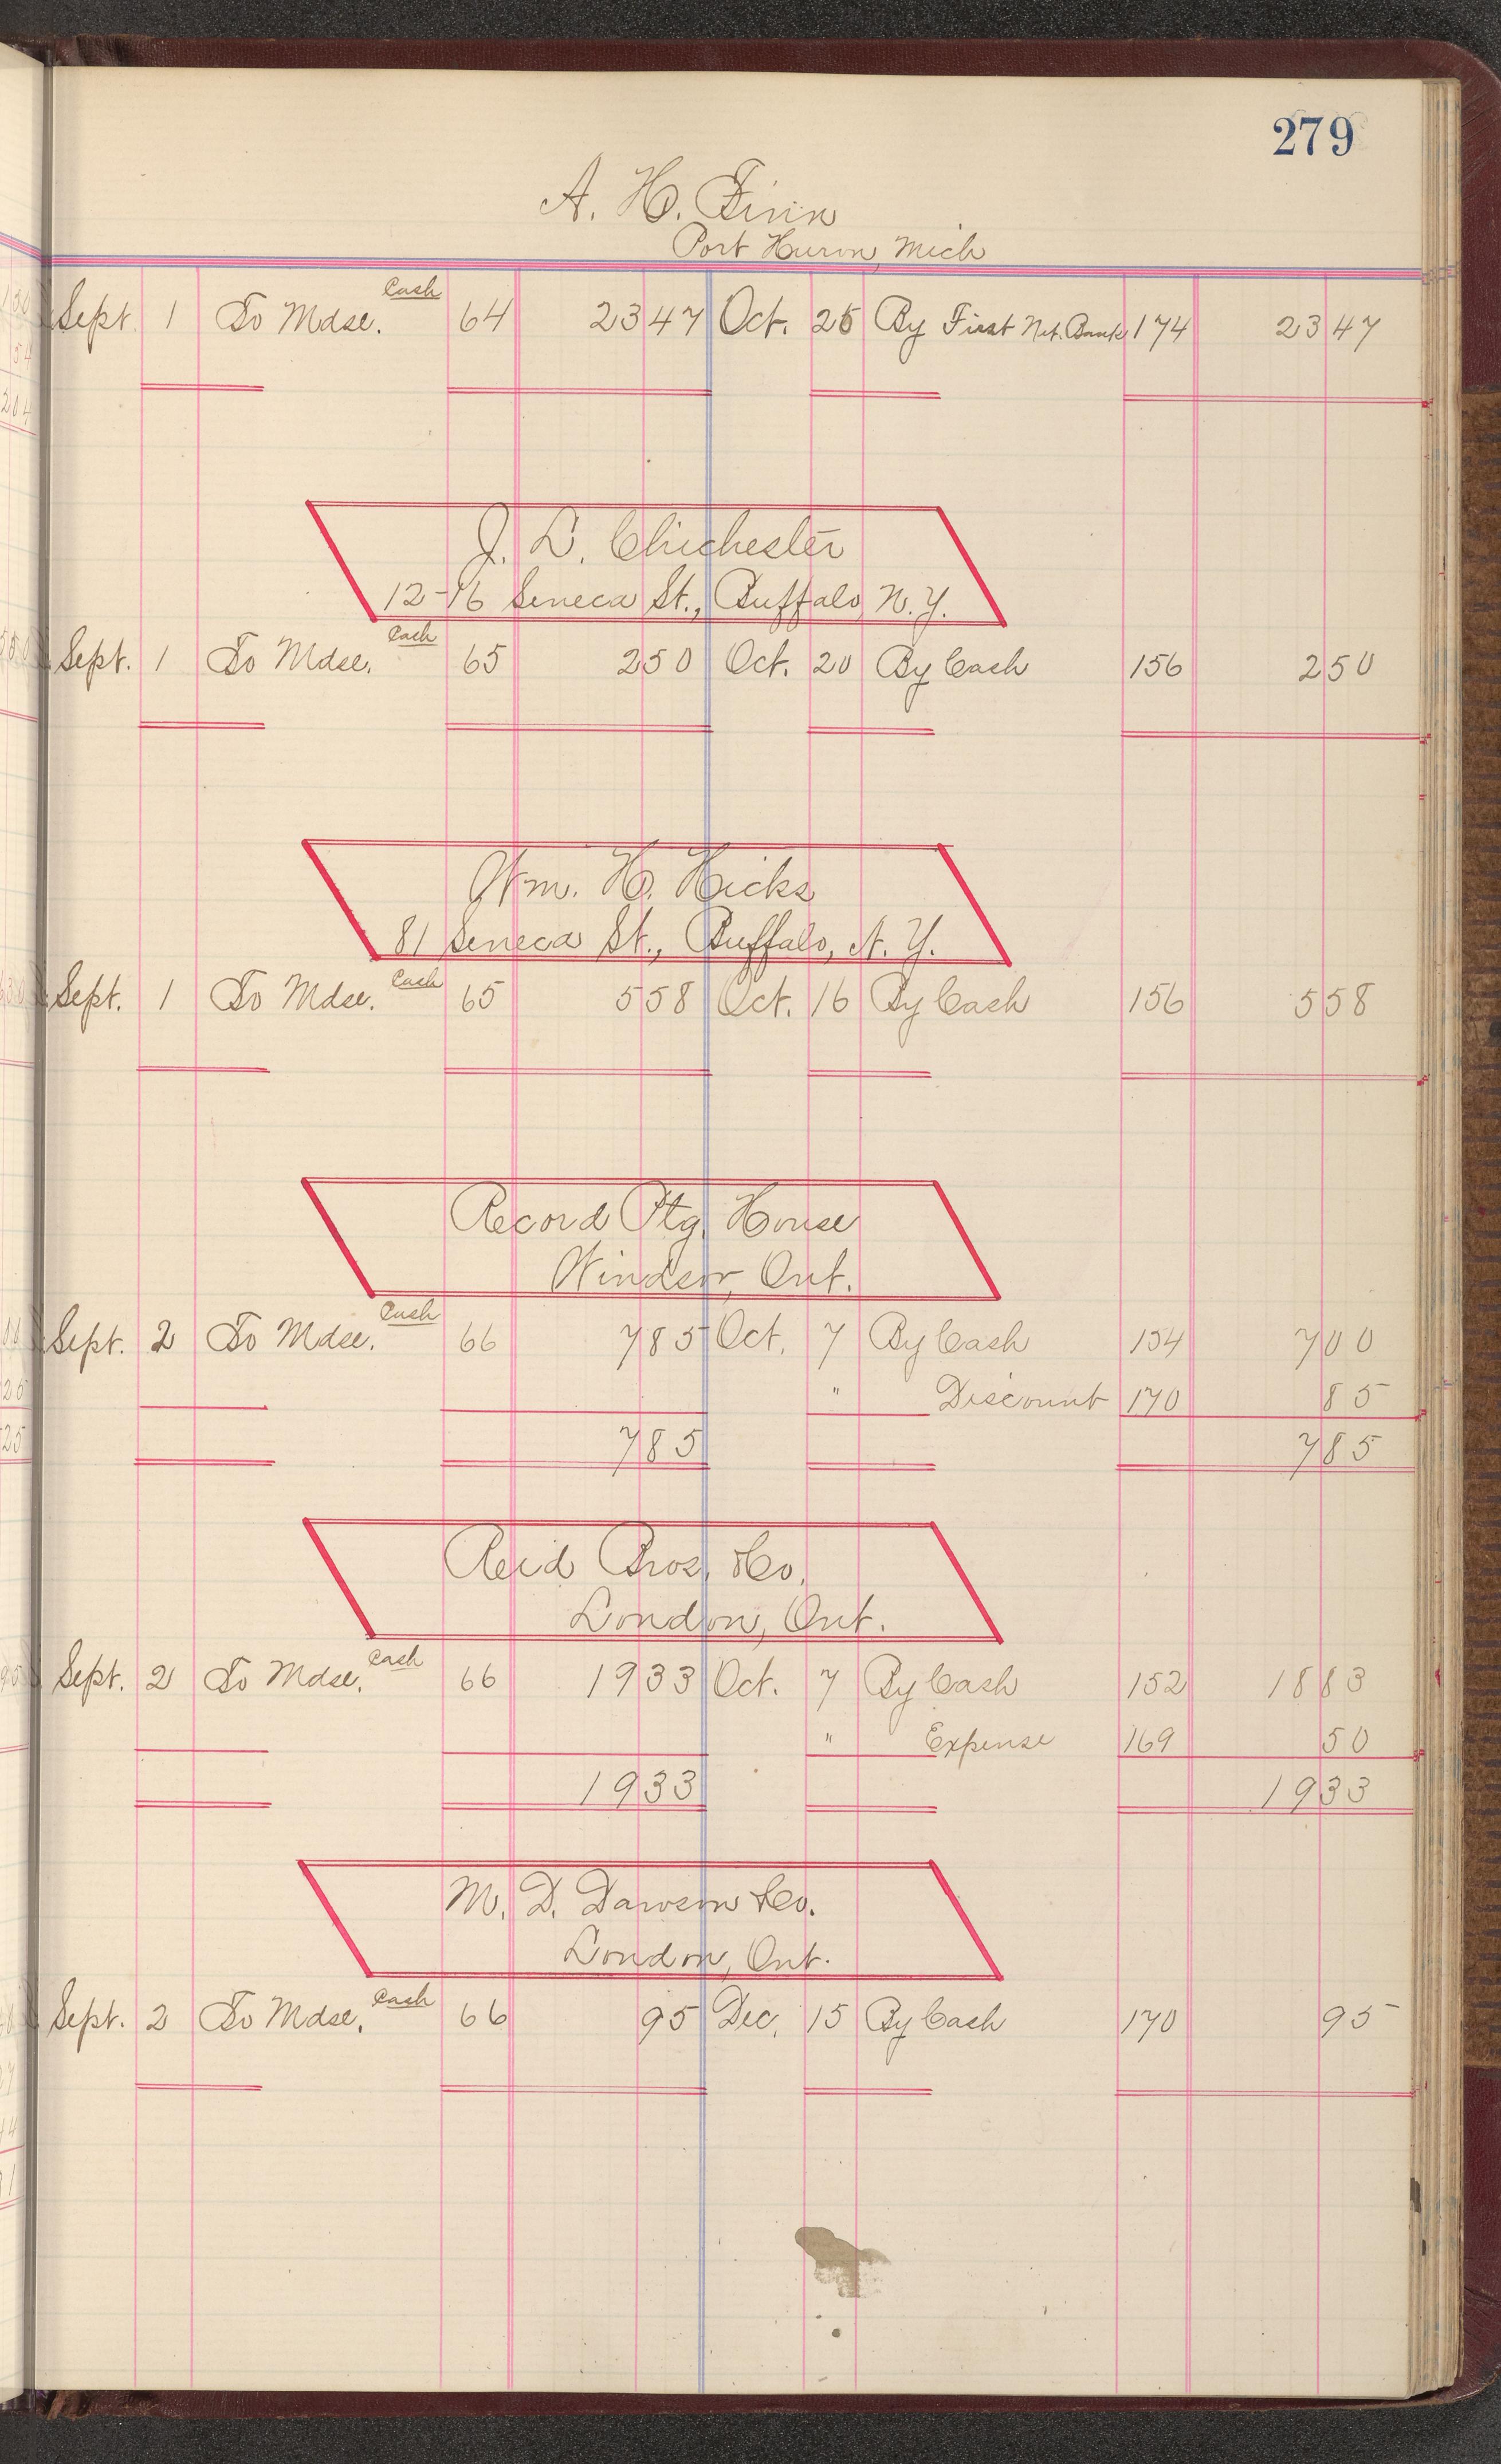 279
A. H. Finn
Port Huron, Mich
Sept. 1 To Mdse. Cash 64 23 47 Oct. 26 By First Nat. Bank 174 23 47
J. L. Chichester
12-16 Seneca St., Buffalo, N. Y.
Sept. 1 To Mdse. Cash 65 2 50 Oct. 20 By Cash 156 2 50
Wm. H. Hicks
81 Seneca St., Buffalo, N. Y.
Sept. 1 To Mdse. Cash 65 5 58 Oct. 16 By Cash 156 5 58
Record Ptg. House
Windsor, Ont.
Sept. 2 To Mdse. Cash 66 7 85 Oct. 7 By Cash 154 7 00
" Discount 170 85
7 85 7 85
Reid Bros. & Co.
London, Ont.
Sept. 2 To Mdse. Cash 66 19 33 Oct. 7 By Cash 152 18 83
" Expense 169 50
19 33 19 33
M. D. Dawson & Co.
London, Ont.
Sept. 2 To Mdse. Cash 66 95 Dec. 15 By Cash 170 95